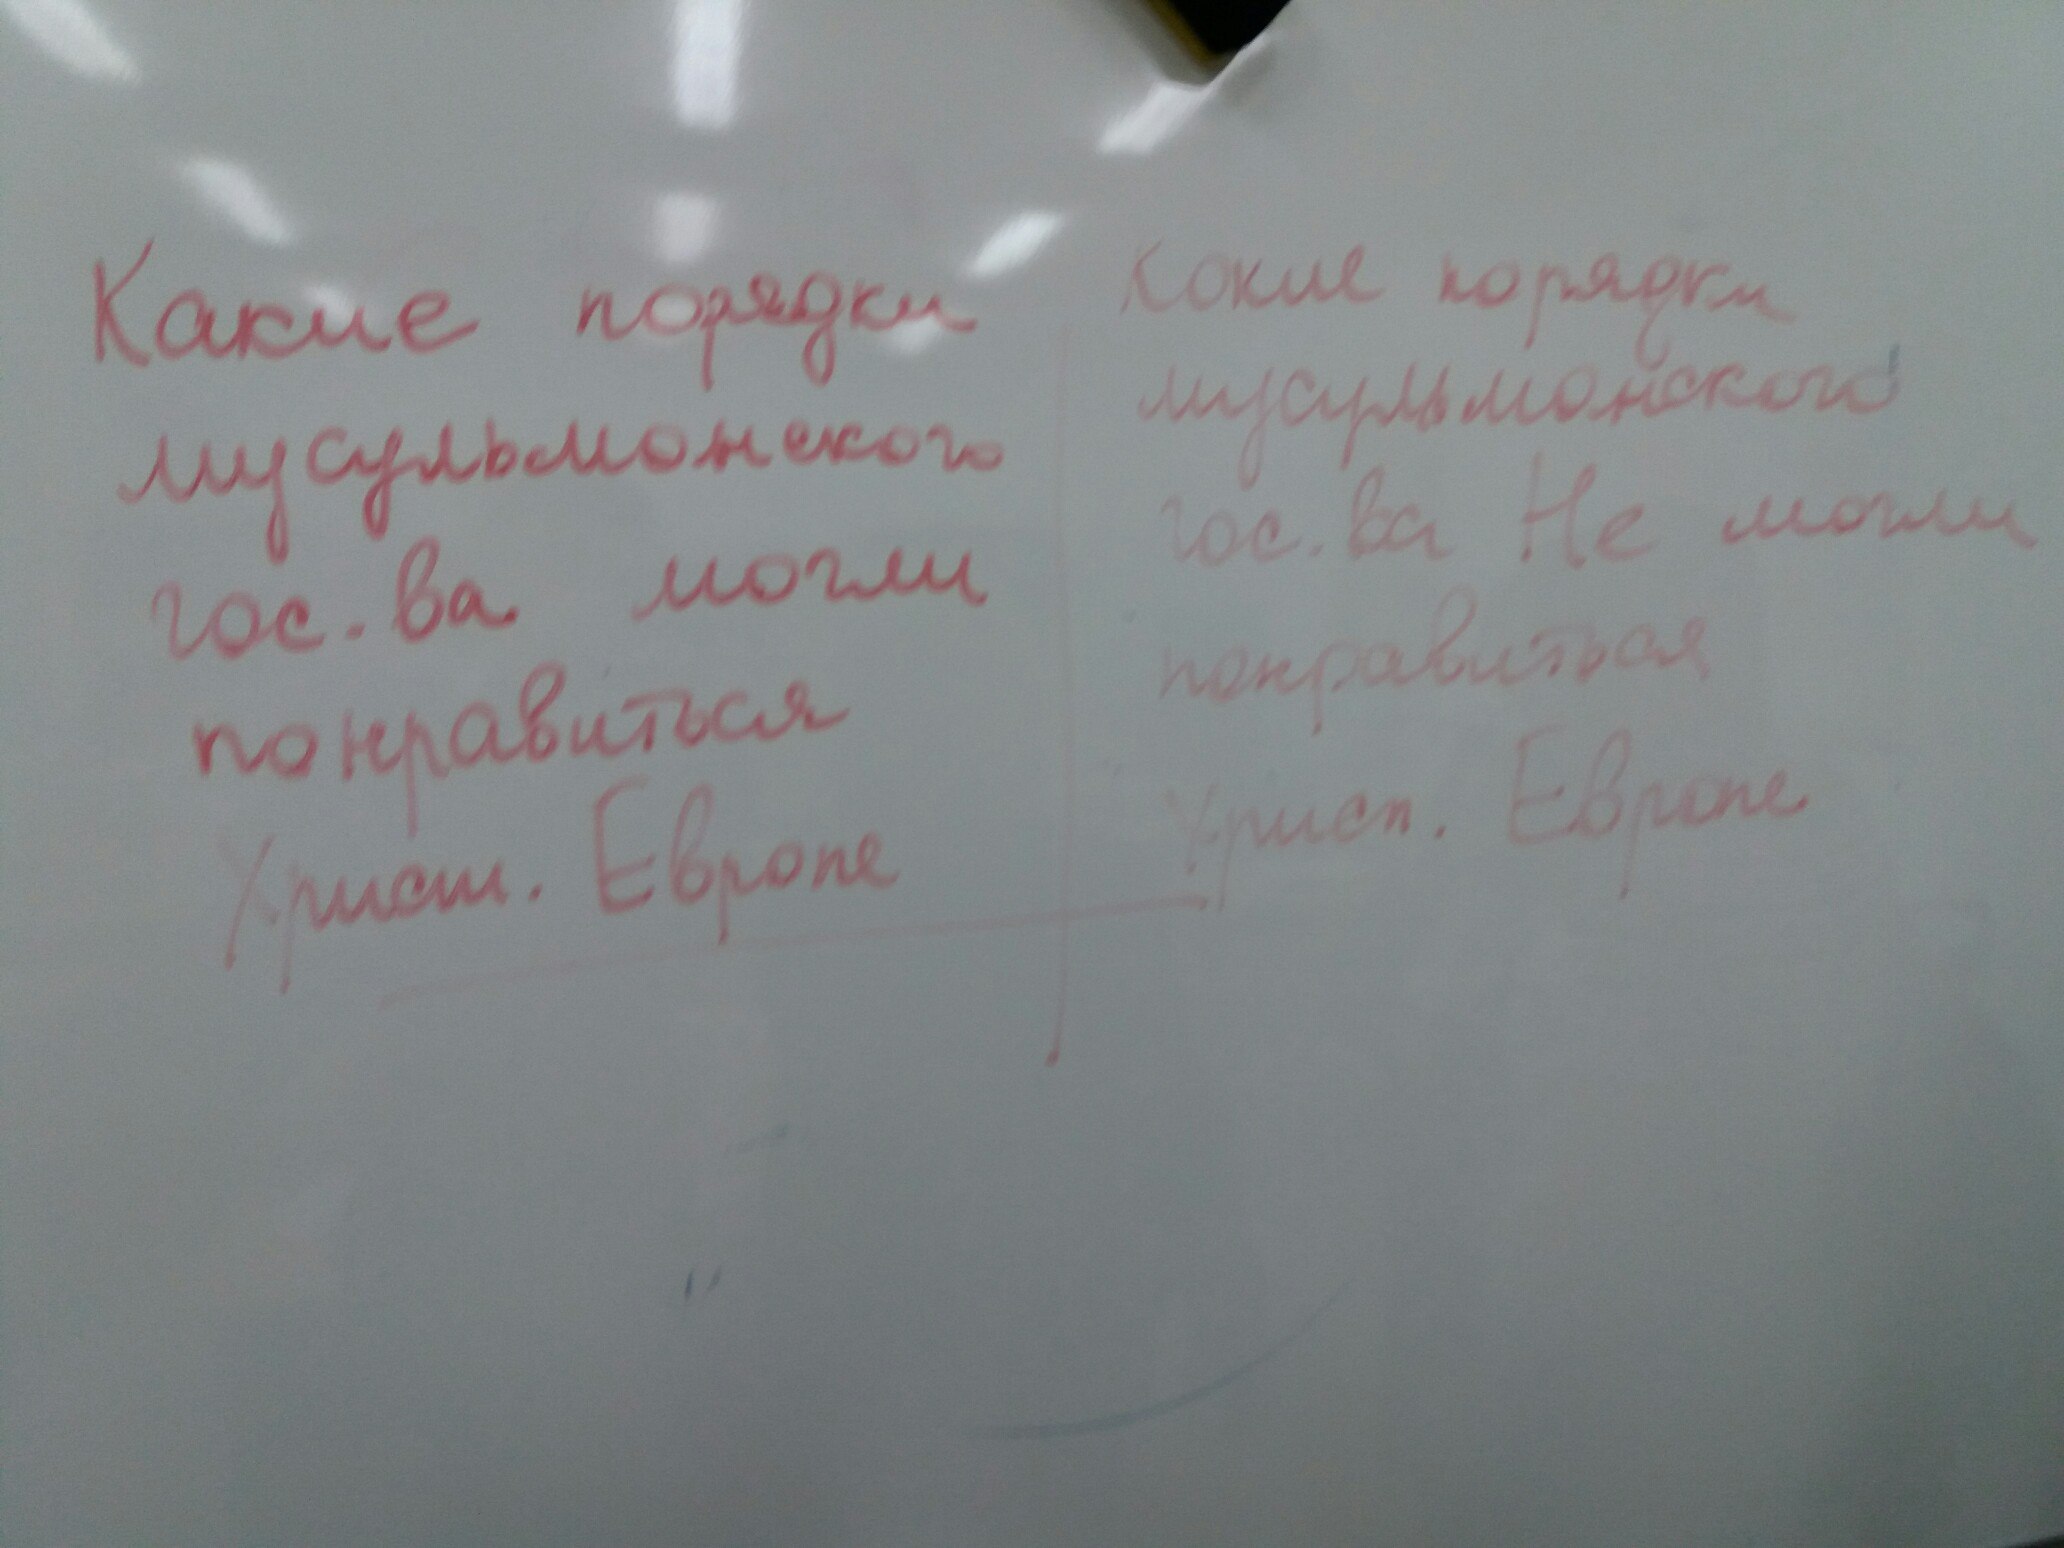 Какие порядки
мусульманского
гос.ва могли
понравиться
Христ. Европе
Какие порядки
мусульманского
гос.ва Не могли
понравиться
Христ. Европе